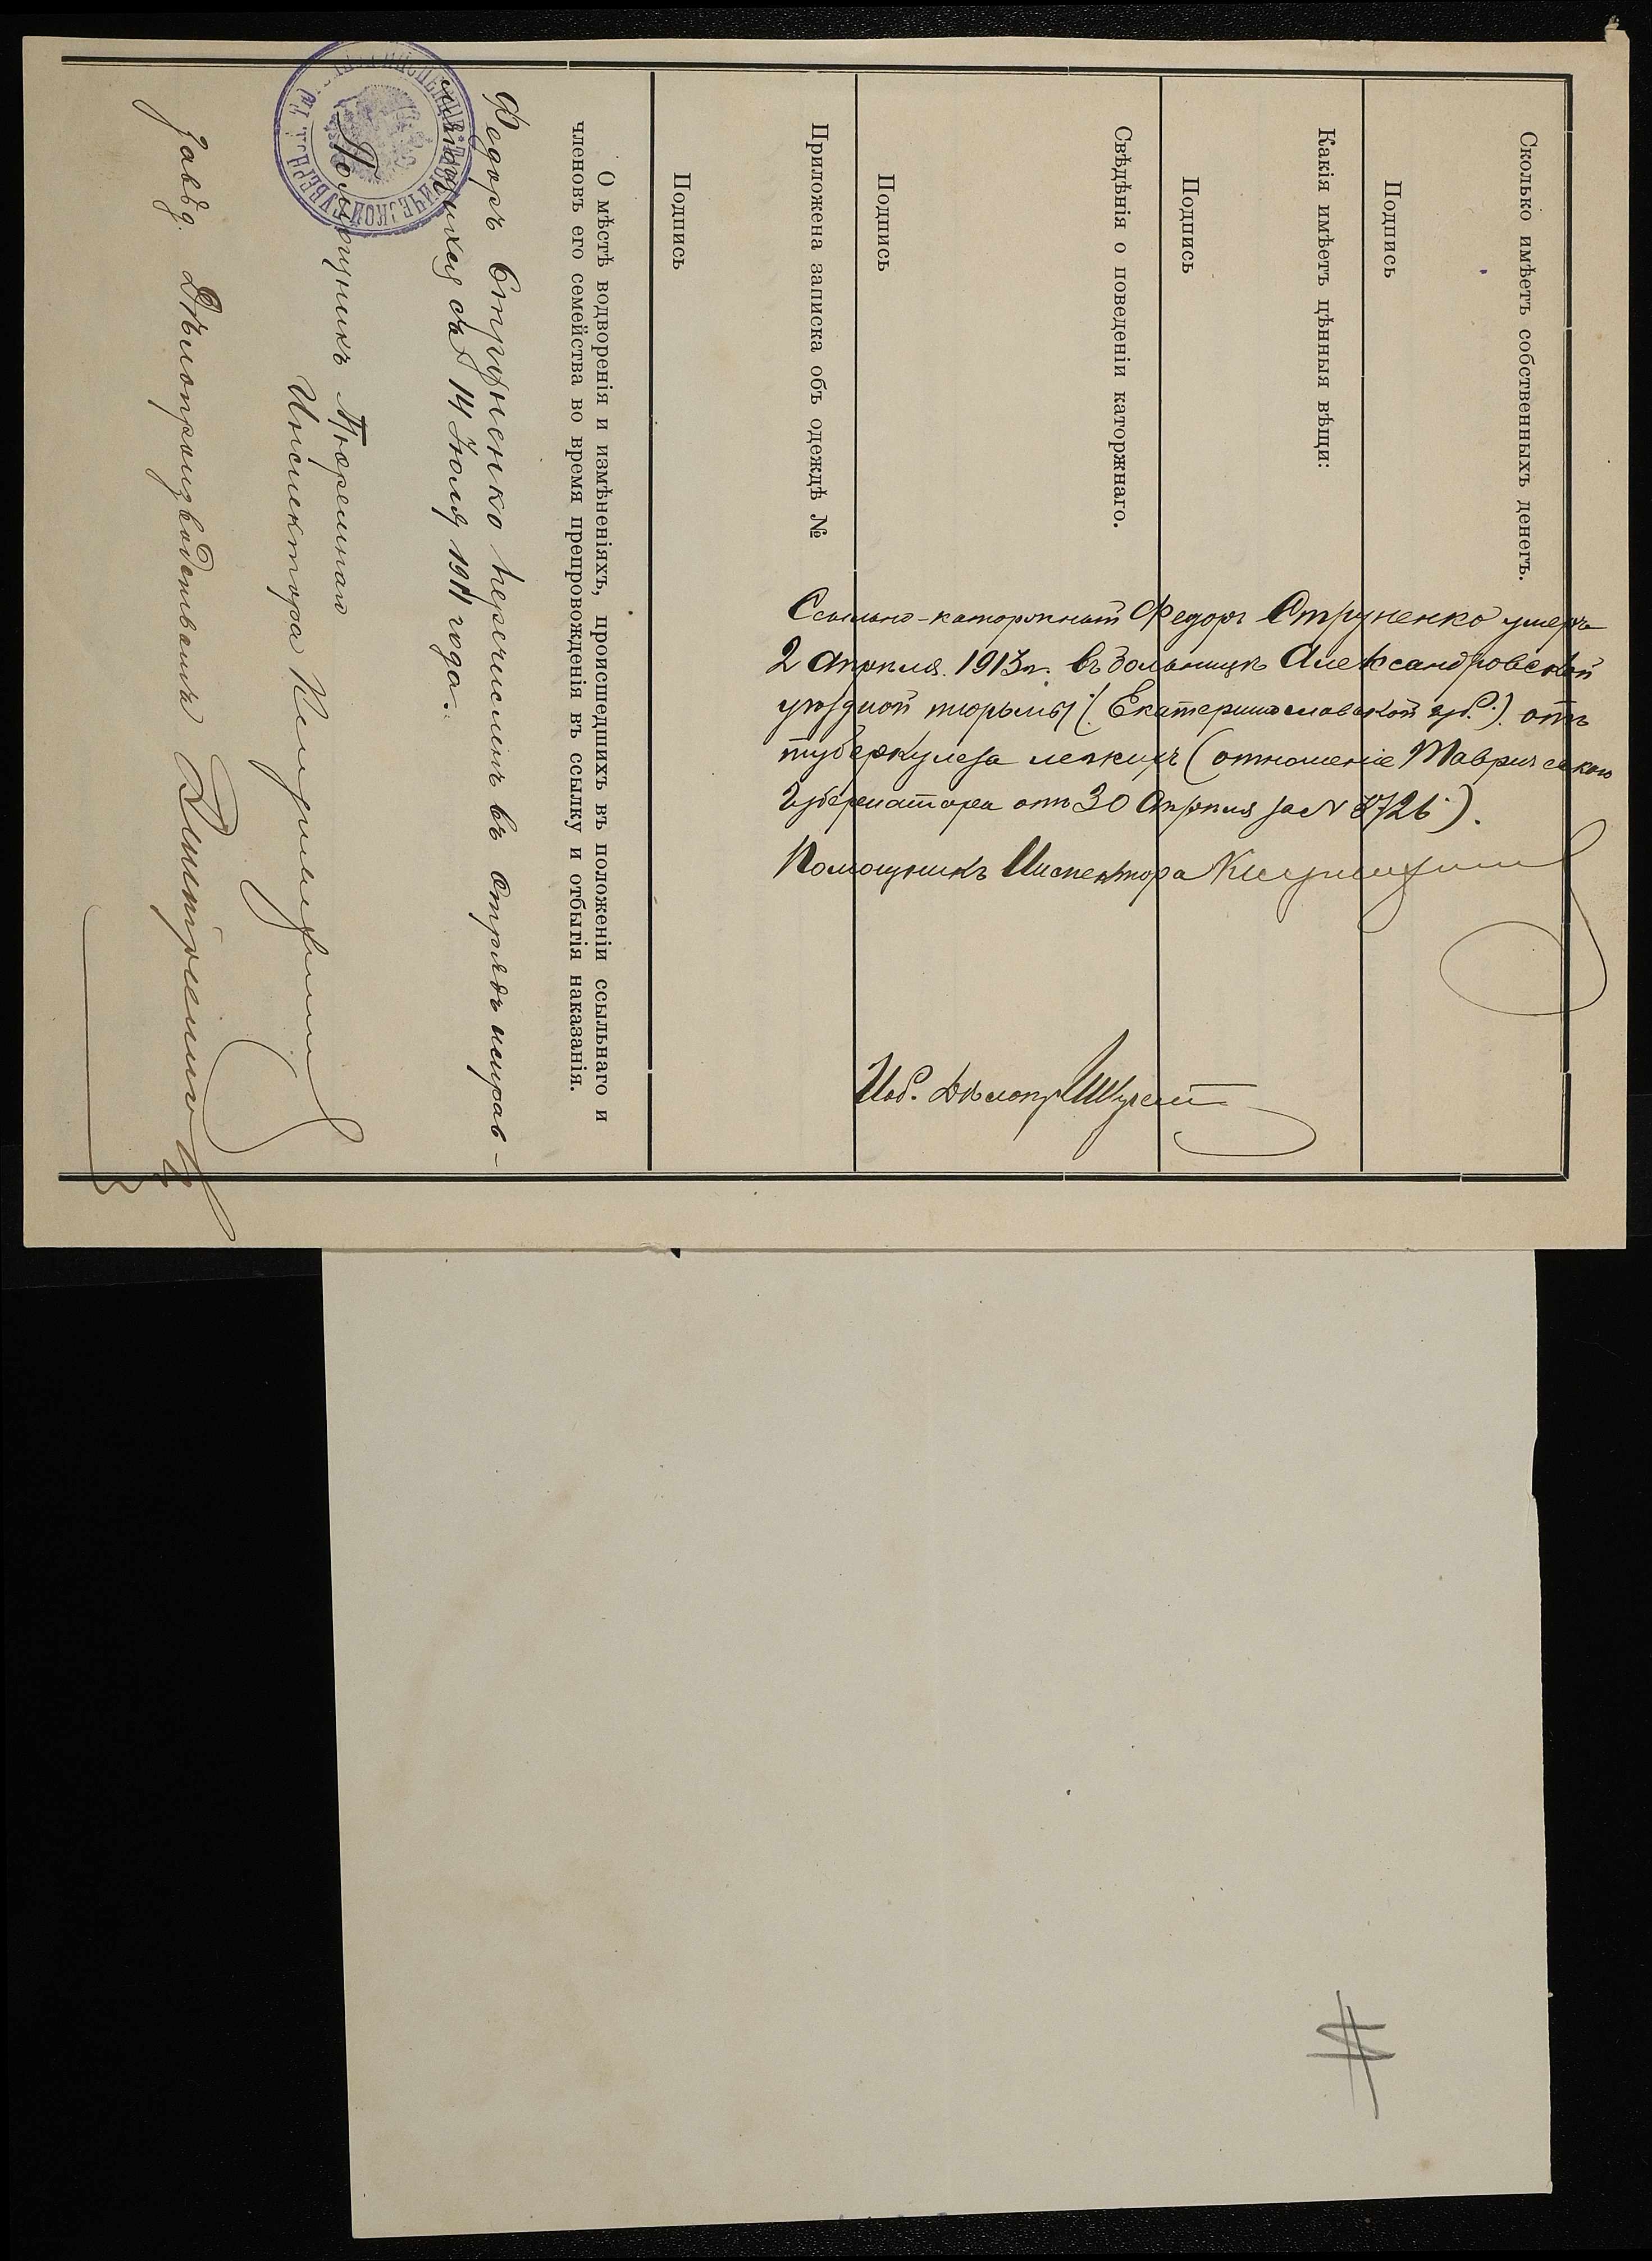 Сколько имѣетъ собственныхъ денегъ.
Подпись
Какія имѣетъ цѣнныя вѣщи:
Подпись
Свѣдѣнія о поведеніи каторжнаго.
Подпись
Приложена записка объ одеждѣ №
Подпись
Ссыльно-каторжный Федоръ Струненко умеръ
2 Апрѣля 1913 г. въ больницѣ Александровской
уѣздной тюрьмы (Екатеринославской губ.) отъ
туберкулеза легкихъ (отношеніе Таврическаго
Губернатора отъ 30 Апрѣля за № 8726).
Помощникъ Инспектора
Исб. Дѣлопр.
О мѣстѣ водворенія и измѣненіяхъ, происшедшихъ въ положеніи ссыльнаго и
членовъ его семейства во время препровожденія въ ссылку и отбытія наказанія.
Федоръ Струненко перечисленъ въ отрядъ исправ-
ляющихся съ 14 Іюля 1911 года.
Помощникъ Тюремнаго
Инспектора
Завѣд. Дѣлопроизводствомъ